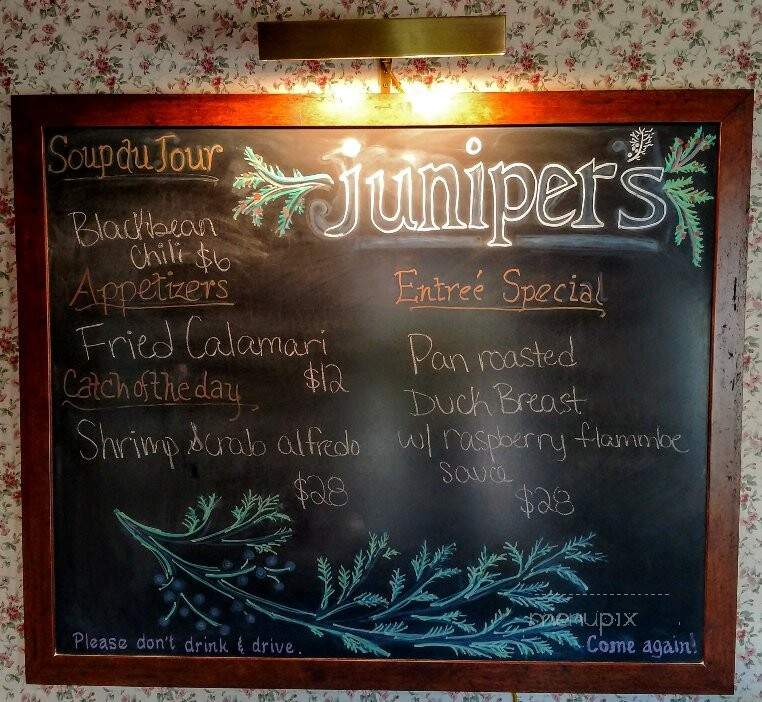 Soup du Jour
junipers
Blackbean
Chili $6
Appetizers
Fried Calamari
$12
Catch of the day
Shrimp & crab alfredo
$28
Entreé Special
Pan roasted
Duck Breast
w/ raspberry flammbe
sauce
$28
menupix
Please don't drink & drive.
Come again!